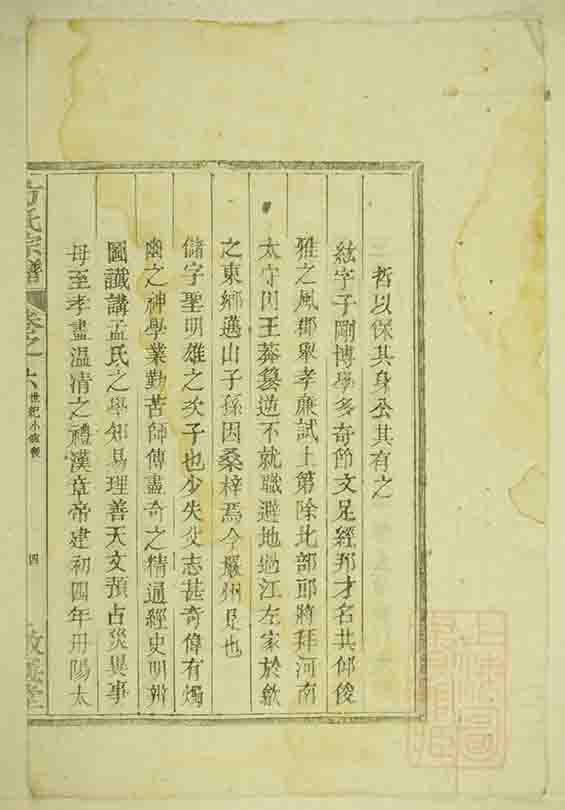 哲以保其身公其有之
紘字子剛博學多奇節文足經邦才名共仰後
雅之風郡舉孝廉試上第除比部郎將拜河南
太守因王莽篡逆不就職避地過江左家於歙
之東鄉邁山子孫因桑梓焉今嚴州是也
儲字聖明雄之次子也少失父志甚奇偉有燭
幽之神學業勤苦師傅盡奇之精通經史明辨
圖讖講孟氏之學知易理善天文預占災異事
母至孝盡温清之禮漢章帝建初四年丹陽太
方氏宗譜
卷之六
世紀小
四